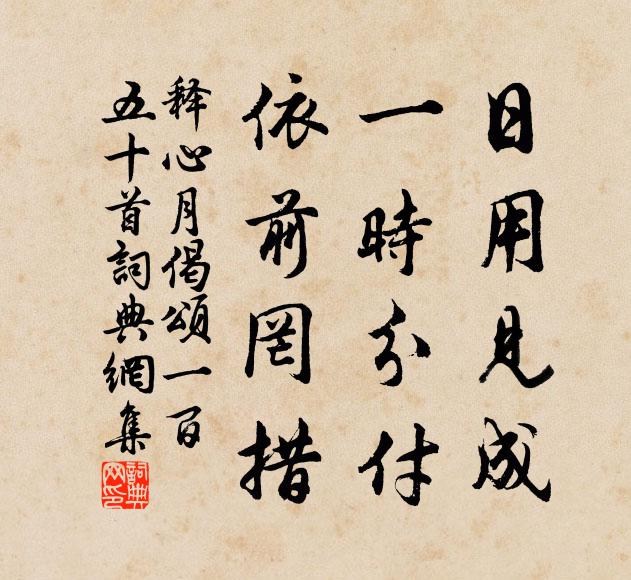 日用見成
一時分付
依前罔措
释心月偈頌一百
五十首詞典網集
詞典
网印